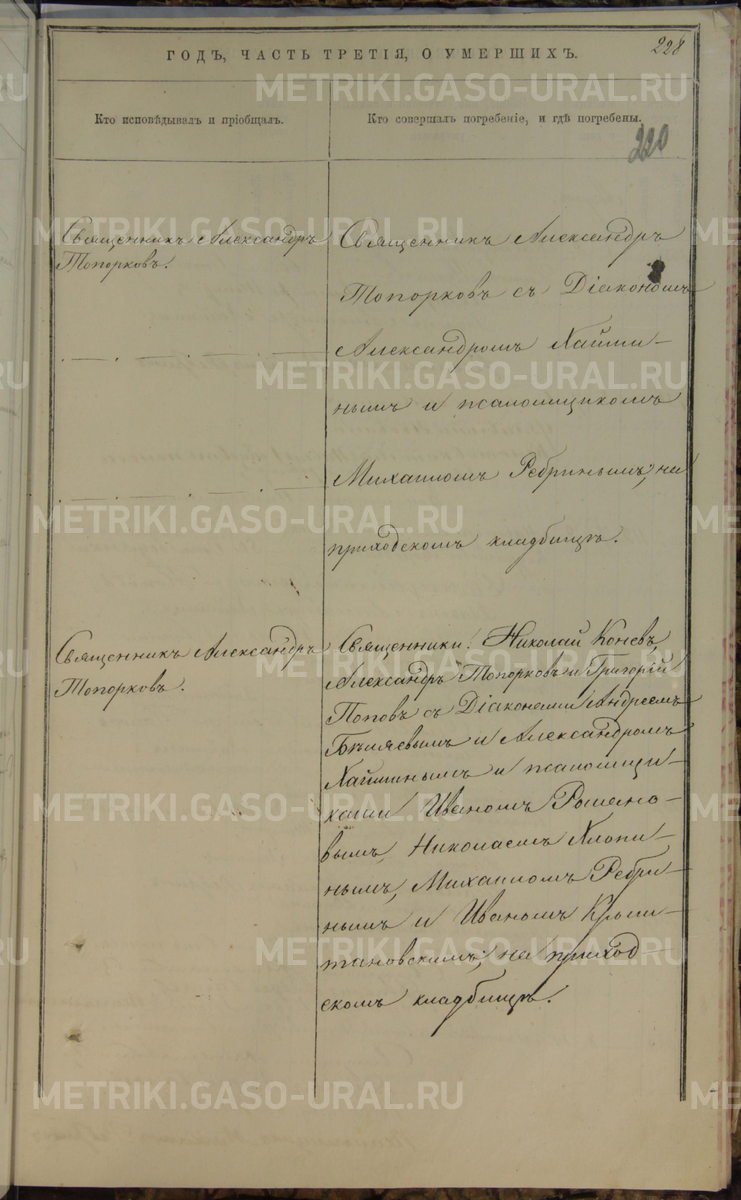 228
ГОДЪ, ЧАСТЬ ТРЕТІЯ, О УМЕРШИХЪ.
Кто исповѣдывалъ и пріобщалъ.
Кто совершалъ погребеніе, и гдѣ погребены.
220
Священникъ Александръ
Топорковъ.
Священникъ Александръ
Топорковъ съ Діакономъ
Александромъ Хайми-
нымъ и псаломщикомъ
Михаиломъ Ребринымъ, на
приходскомъ кладбищѣ.
Священникъ Александръ
Топорковъ.
Священники: Николай Коневъ,
Александръ Топорковъ и Григорій
Поповъ съ Діаконами Андреемъ
Бѣляевымъ и Александромъ
Хайминымъ и псаломщи-
ками Иваномъ Романо-
вымъ, Николаемъ Хлопи-
нымъ, Михаиломъ Ребри-
нымъ и Иваномъ
на приход-
скомъ кладбищѣ.
METRIKI.GASO-URAL.RU